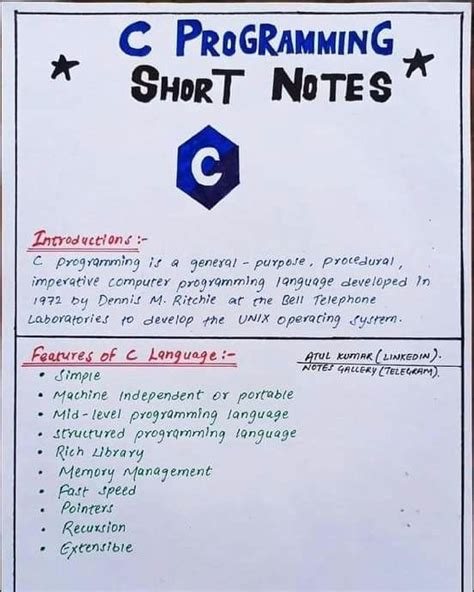 C PROGRAMMING
SHORT NOTES
C
Introductions :-
C programming is a general - purpose, procedural,
imperative computer programming language developed in
1972 by Dennis M. Ritchie at the Bell Telephone
Laboratories to develop the UNIX operating system.
Features of C Language :-
ATUL KUMAR (LINKEDIN).
NOTES GALLERY (TELEGRAM).
• Simple
• Machine Independent or portable
• Mid - level programming language
• structured programming language
• Rich Library
• Memory Management
• Fast speed
• Pointers
• Recursion
• Extensible